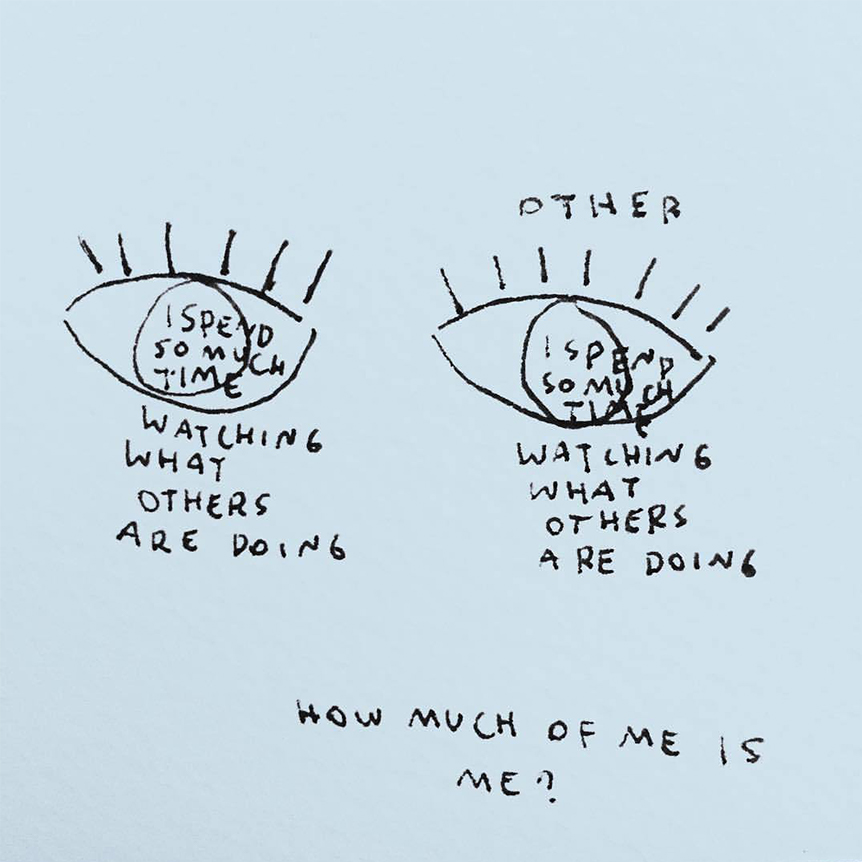 I SPEND
SO MUCH
TIME
WATCHING
WHAT
OTHERS
ARE DOING
OTHER
I SPEND
SO MUCH
TIME
WATCHING
WHAT
OTHERS
ARE DOING
HOW MUCH OF ME IS
ME?